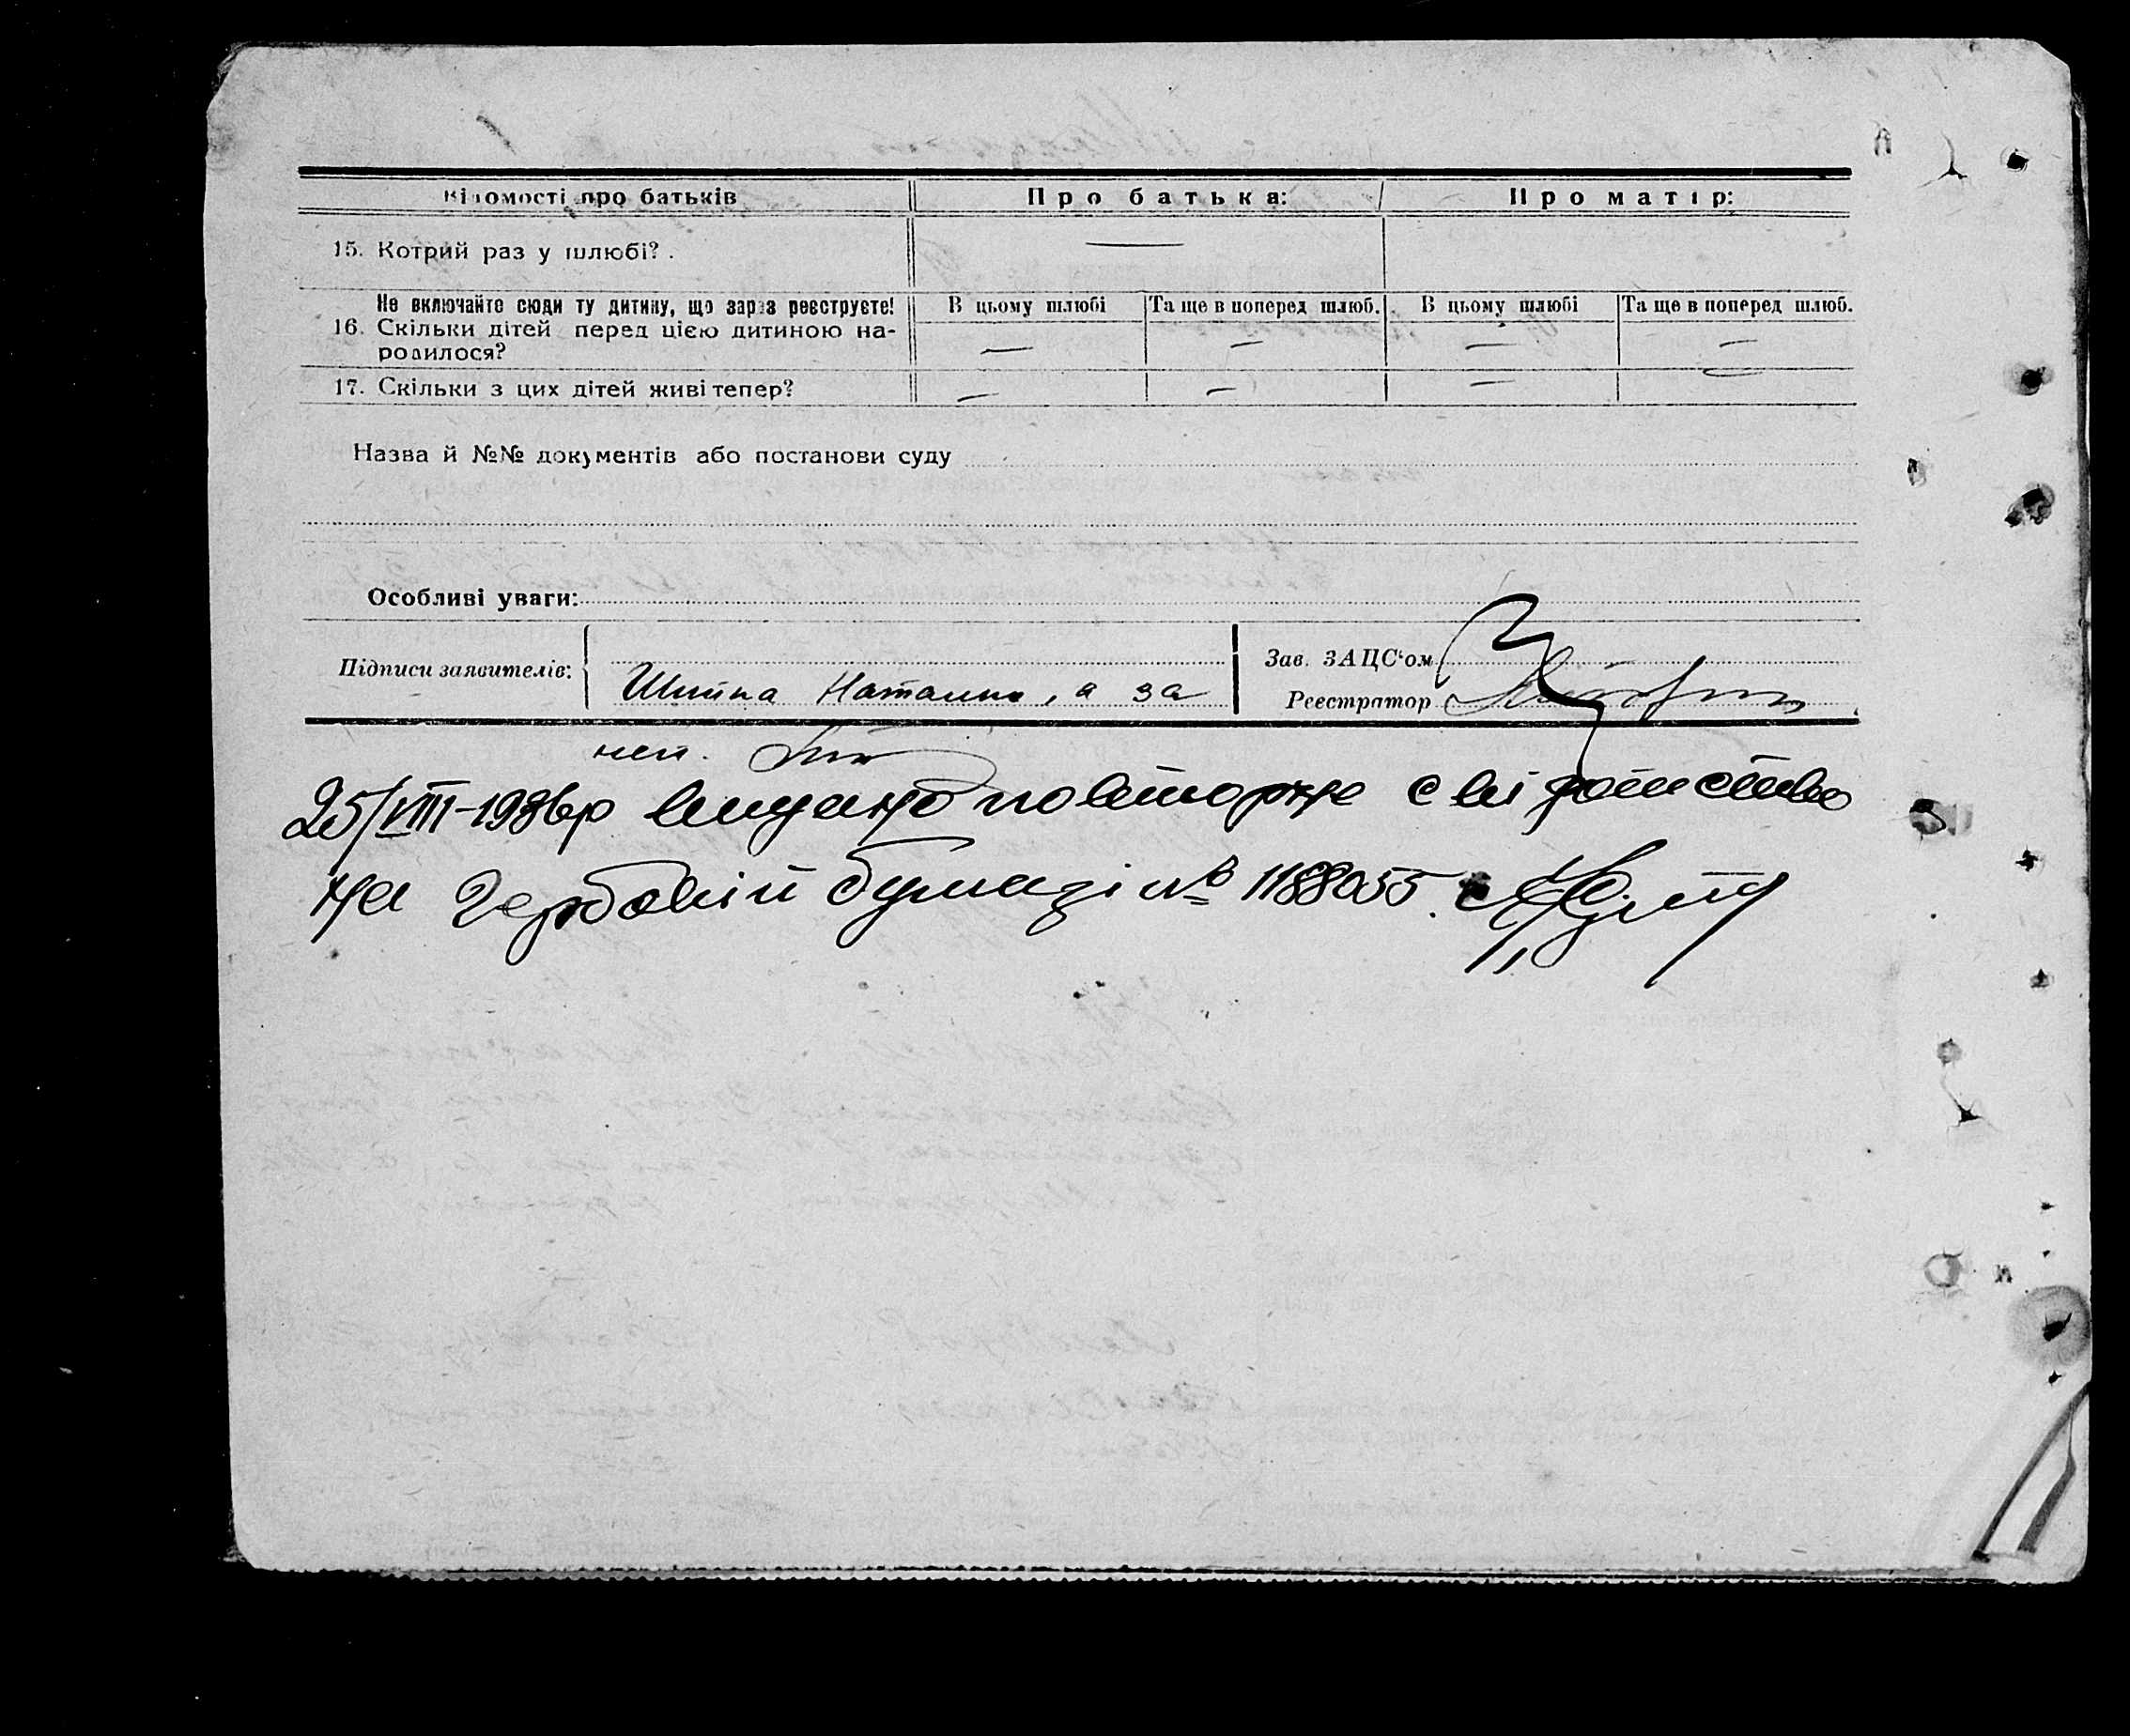 Відомості про батьків Про батька: Про матір:
15. Котрий раз у шлюбі? . —
Не включайте сюди ту дитину, що зараз реєструєте! В цьому шлюбі Та ще в поперед шлюб. В цьому шлюбі Та ще в поперед шлюб.
16. Скільки дітей перед цією дитиною на-
родилося? — — — —
17. Скільки з цих дітей живі тепер? — — — —
Назва й №№ документів або постанови суду
Особливі уваги:
Підписи заявителів: Зав. ЗАЦС'ом
Наталка, а за Реєстратор
неп.
25/VIII-1936р видано повторне свідотство
на гербовій бумазі № 1188055.